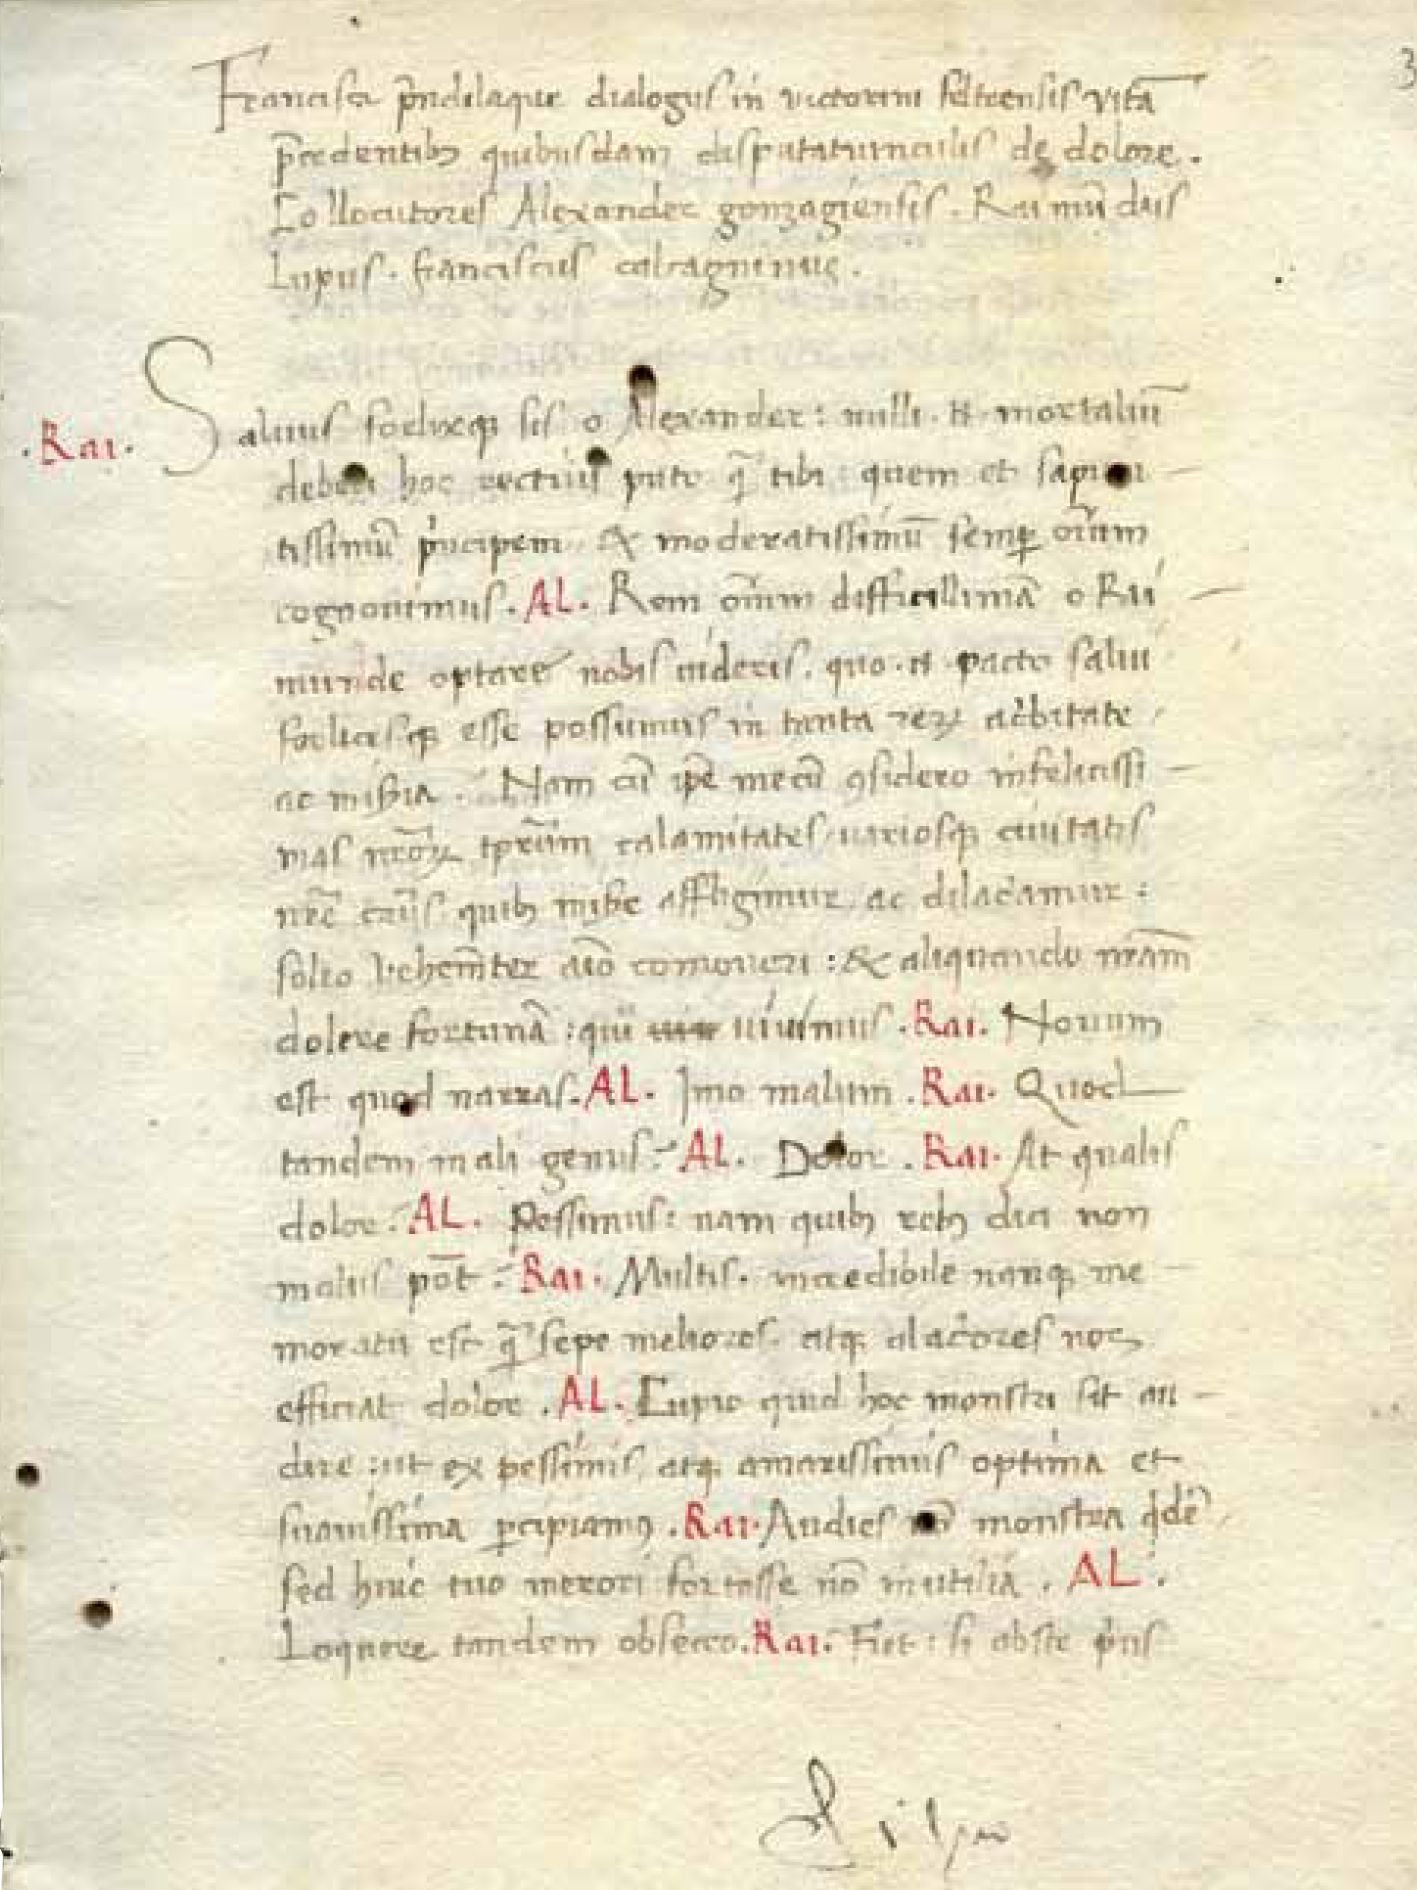 3
Francisci p̄ndilaquae dialogus in victorini feltrensis vitā
p̄cedentibꝫ quibusdam disputatiunculis de dolore.
Collocutores Alexander gonzagiensis. Raimūdus
Lupus. franciscus calcagninus.
.Rai. Saluus foelixqꝫ sis o Alexander: nulli .n. mortaliū
deberi hoc rectius puto q̄ tibi quem et sapien
tissimū p'ncipem & moderatissimū semꝑ oīum
cognouimus. AL. Rem oīum difficillimā o Rai
munde optare nobis uideris. quo .n. pacto salui
foelicesqꝫ esse possumus in tanta reꝝ ac̓bitate
ac mis̓ia. Nam cū ip̄e mecū ꝯsidero infelicissi
mas nr̄oꝝ tp̄rum calamitates uariosqꝫ ciuitatis
nr̄e cas̄us quibꝫ mis̓e affligimur ac dilac̓amur:
soleo uehem̄ter aīo comoueri: & aliquando nr̄am
dolere fortunā: qui uiuimus. Rai. Nouum
est quod narras. AL. Imo malum. Rai. Quod
tandem mali genus? AL. Dolor. Rai. At qualis
dolor? AL. Pessimus: nam quibꝫ rebꝫ dici non
malus pōt? Rai. Multis. incredibile nanqꝫ me
moratu est q̄ sepe meliores atqꝫ alac̓ores nos
efficiat dolor. AL. Cupio quid hoc monstri sit au
dire: ut ex pessimis atqꝫ amarissimis optima et
suauissima ꝑcipiamꝰ. Rai. Audies nō monstra q'dē
sed huic tuo merori fortasse nō inutilia. AL.
Loquere tandem obsecro. Rai. Fiet: si abste p'us